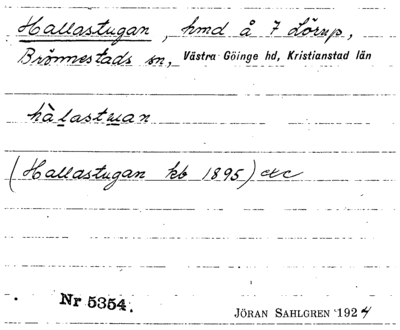 Hallastugan, hmd å 7 Lörup,
Brönnestads sn, Västra Göinge hd, Kristianstad län
hàlastuan
(Hallastugan kb 1895) etc
Nr 5354.
JÖRAN SAHLGREN 1924